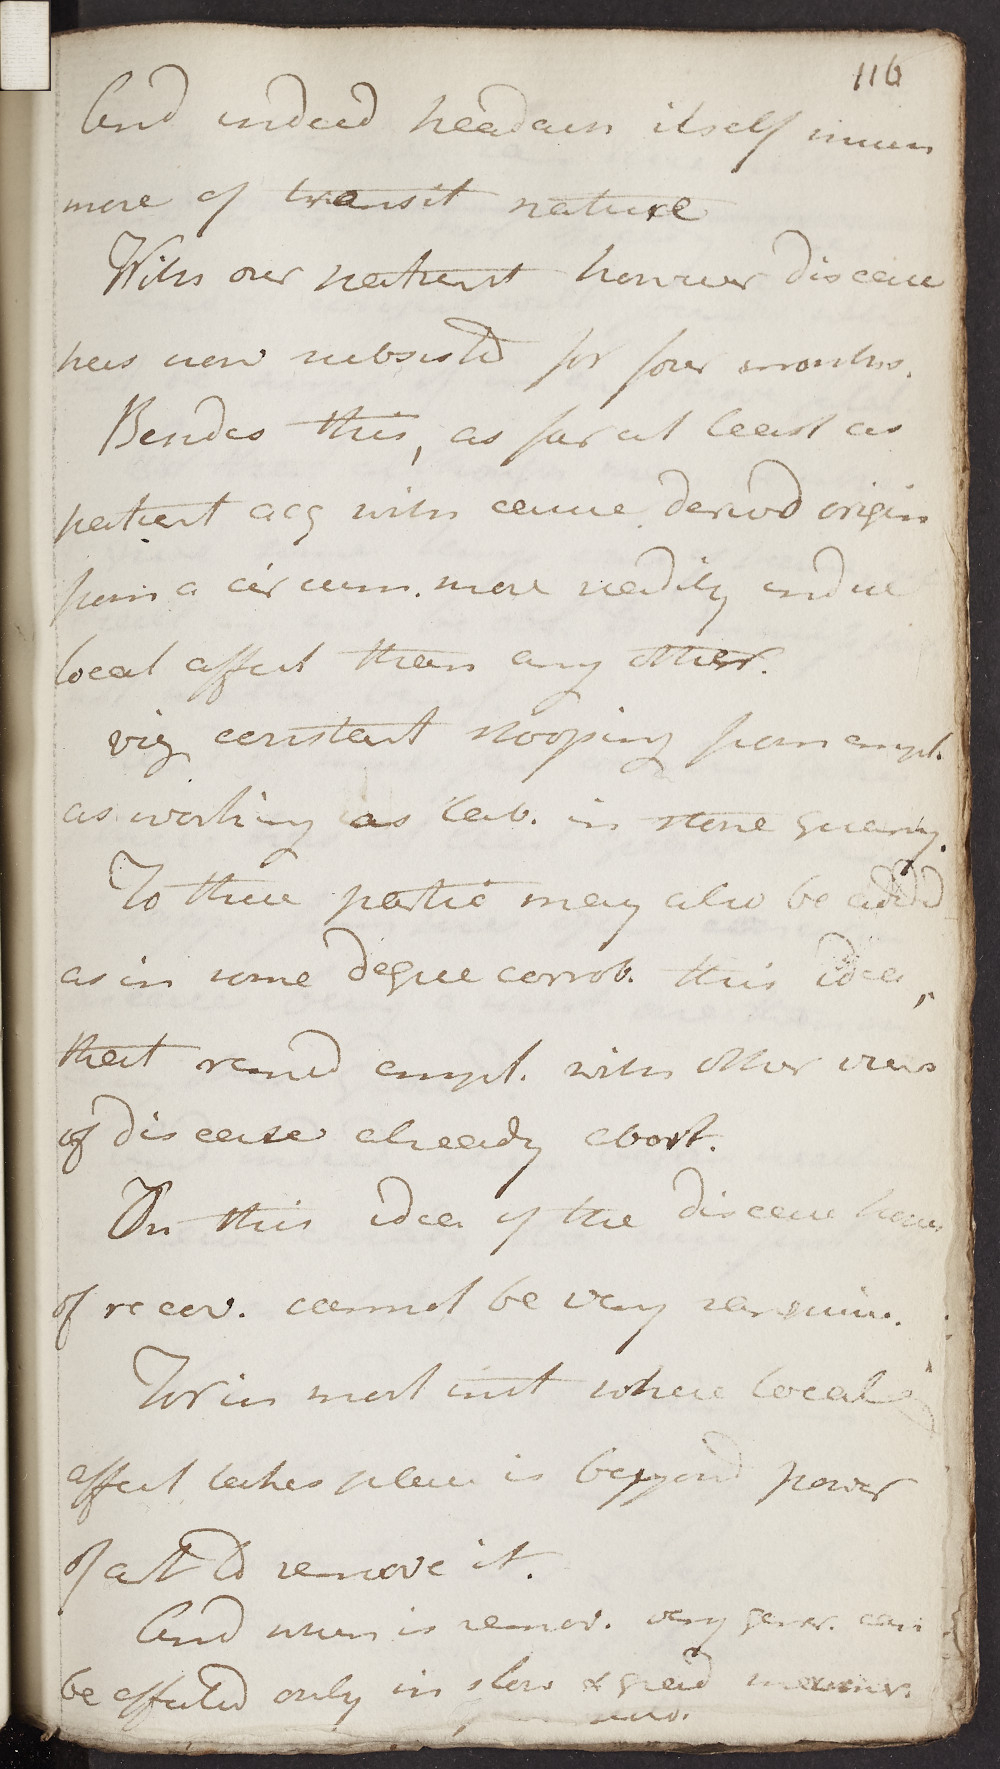 116
And indeed headach itself muen
more of transit nature
With our patient however disease
has now subsisted for four months.
Besides this, as far at least as
patient acq with cause, derivd origin
from a circum. more readily induc
local affect than any other.
viz constant stooping from empl.
as working as lab. in stone quarry.
To these partic may also be added
as in some degree corrob. this idea,
that remed empl. with other views
of disease already abort.
On this idea of the disease hopes
of recov. cannot be very sanguin.
For in most inst where local
affect takes place is beyond power
of art to remove it.
And when is remov. very gener. can
be affected only in slow & grad manner.